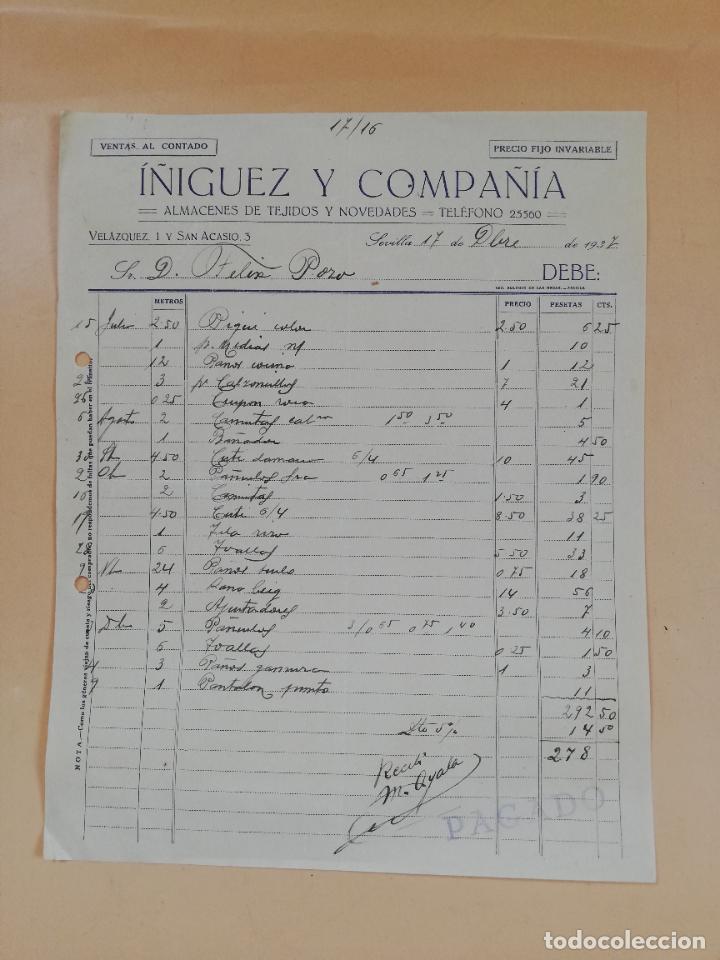 17/16
VENTAS AL CONTADO
PRECIO FIJO INVARIABLE
ÍÑIGUEZ Y COMPAÑÍA
ALMACENES DE TEJIDOS Y NOVEDADES = TELÉFONO 25560
VELÁZQUEZ, 1 Y SAN ACASIO, 3
Sevilla 17 de Dbre de 1937
Sr. D. Felix Poro
DEBE:
METROS PRECIO PESETAS CTS.
15 Julio 2.50 Piqué color 2.50 6 25
1 p. Medias 10
12 Paños cocina 1 12
3 p. Calzoncillos 7 21
0.25 Cupon 4 1
6 Agosto 2 Camisetas 1.50 3.50 5
1 Bañador 4 50
4.50 Cuti damasco 6/4 10 45
2 2 Pañuelos 0.65 1.25 1 90
16 2 Camisetas 1.50 3
17 4.50 Cuti 6/4 8.50 38 25
1 Tela 11
6 Toallas 5.50 23
9 24 Paños 0.75 18
4 Lana beig 14 56
2 Ajustadores 3.50 7
5 Pañuelos 3/0.65 0.75 1.40 4 10
6 Toallas 0.25 1.50
3 Paños gamuza 1 3
1 Pantalon punto 11
292 50
Dto 5% 14 50
278
Recibí
M. Ayala
PAGADO
NOTA.—Como los géneros viajan de cuenta y riesgo del comprador, no respondemos de faltas que puedan haber en el tránsito
todocoleccion
todocoleccion.net